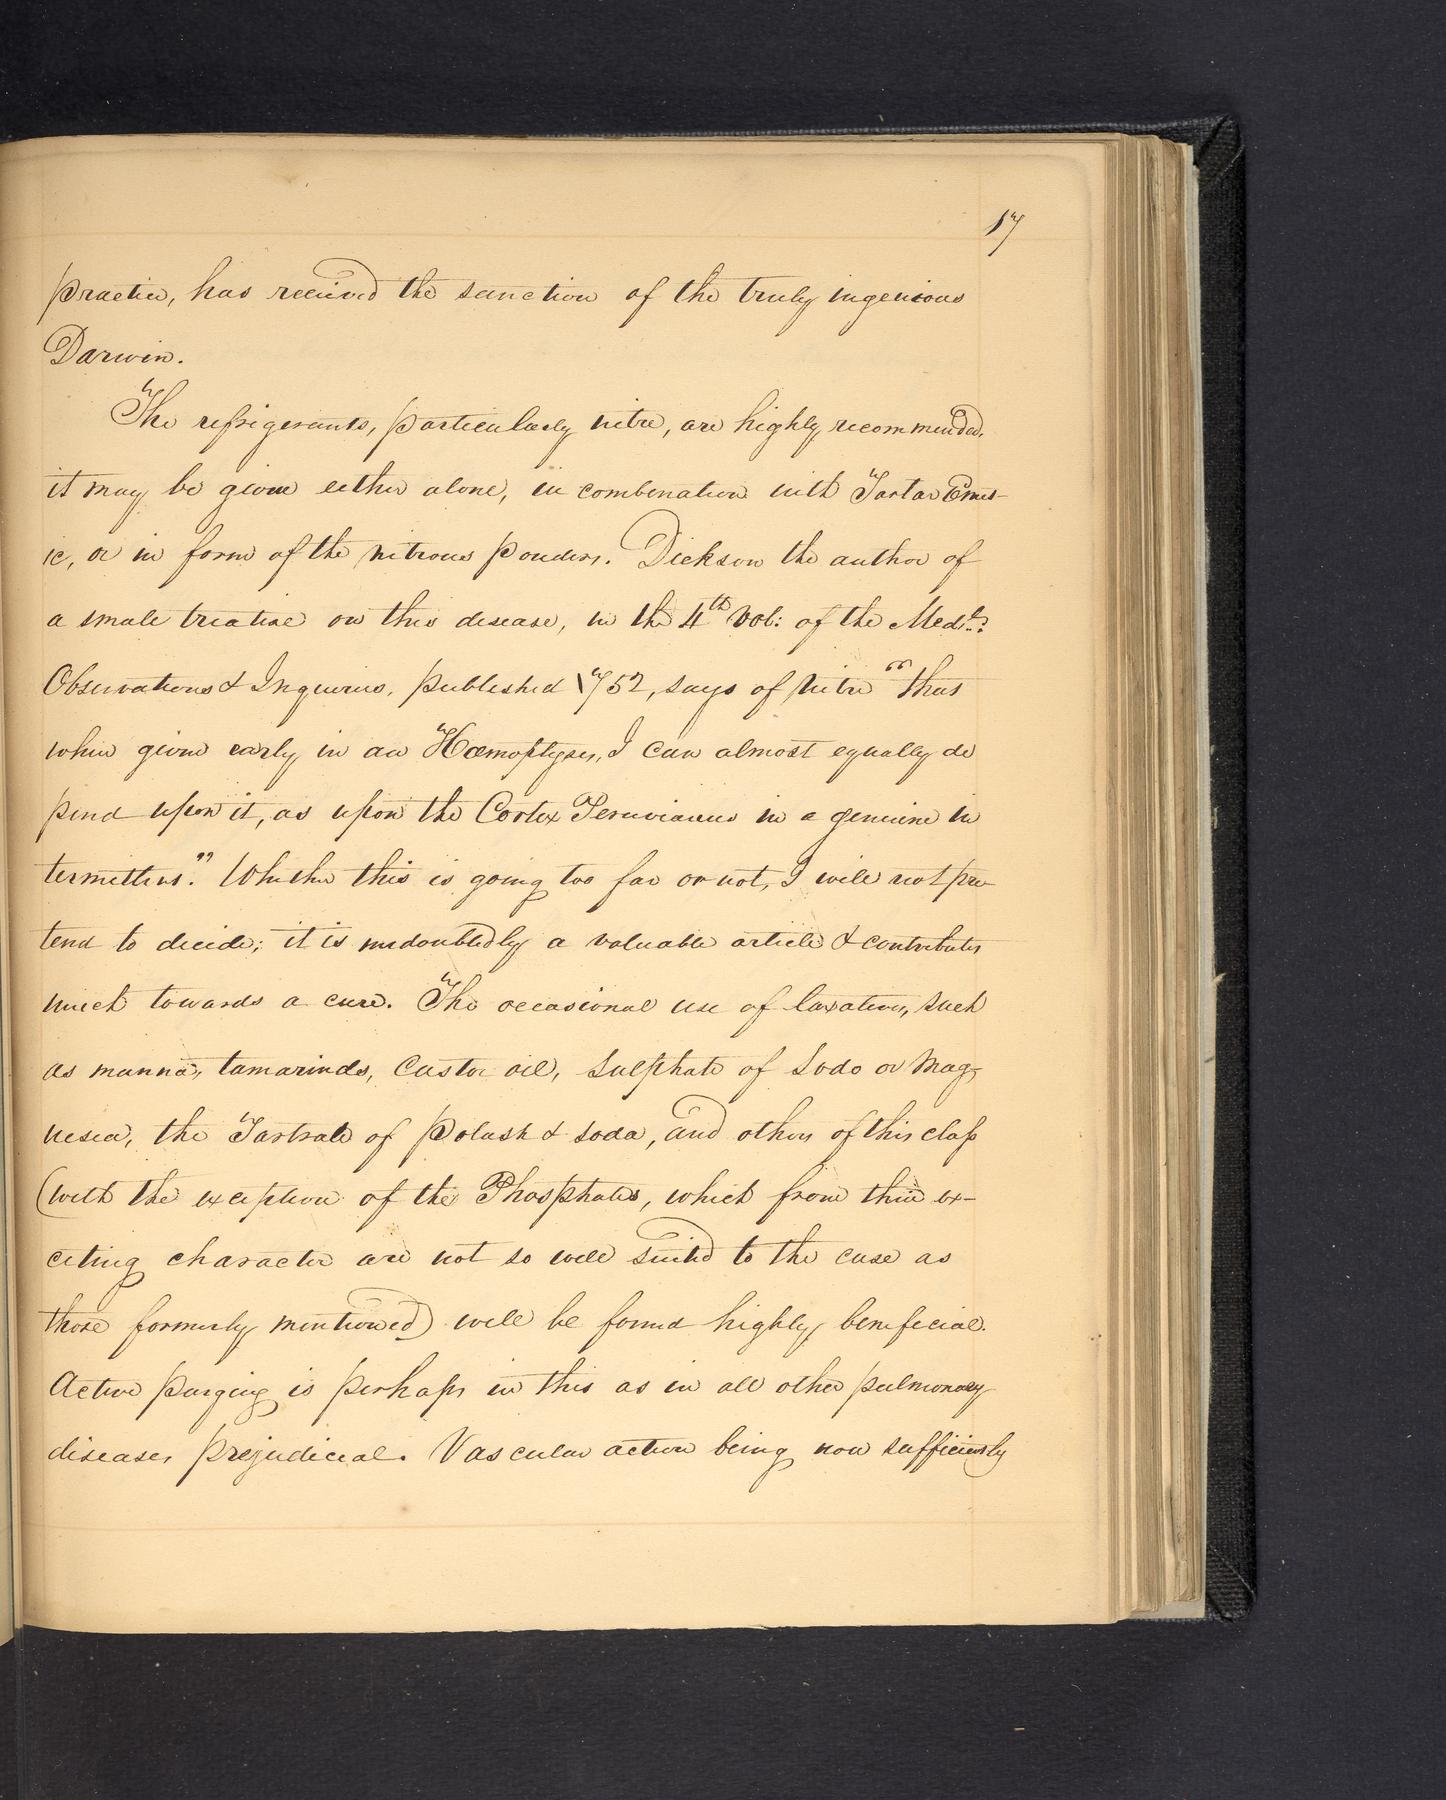 17
practice, has received the sanction of the truly ingenious
Darwin.
The refrigerants, particularly nitre, are highly recommended,
it may be given either alone, in combination with Tartar Emet-
ic, or in form of the nitrous powders. Dickson the author of
a small treatise on this disease, in the 4th Vol: of the Medl:
Observations & Inquiries, published 1752, says of nitre "thus
when given early in an Hæmoptyses, I can almost equally de
pend upon it, as upon the Cortex Peruvianus in a genuine in
termittens." Whether this is going too far or not, I will not pre
tend to decide; it is undoubtedly a valuable article & contributes
much towards a cure. The occasional use of laxatives, such
as manna, tamarinds, Castor oil, Sulphate of Soda or Mag-
nesia, the Tartrate of Potash & soda, and others of this class
(with the exception of the Phosphates, which from their ex-
citing character are not so well suited to the case as
those formerly mentioned) will be found highly beneficial.
Active purging is perhaps in this as in all other pulmonary
diseases prejudicial. Vascular action being now sufficiently